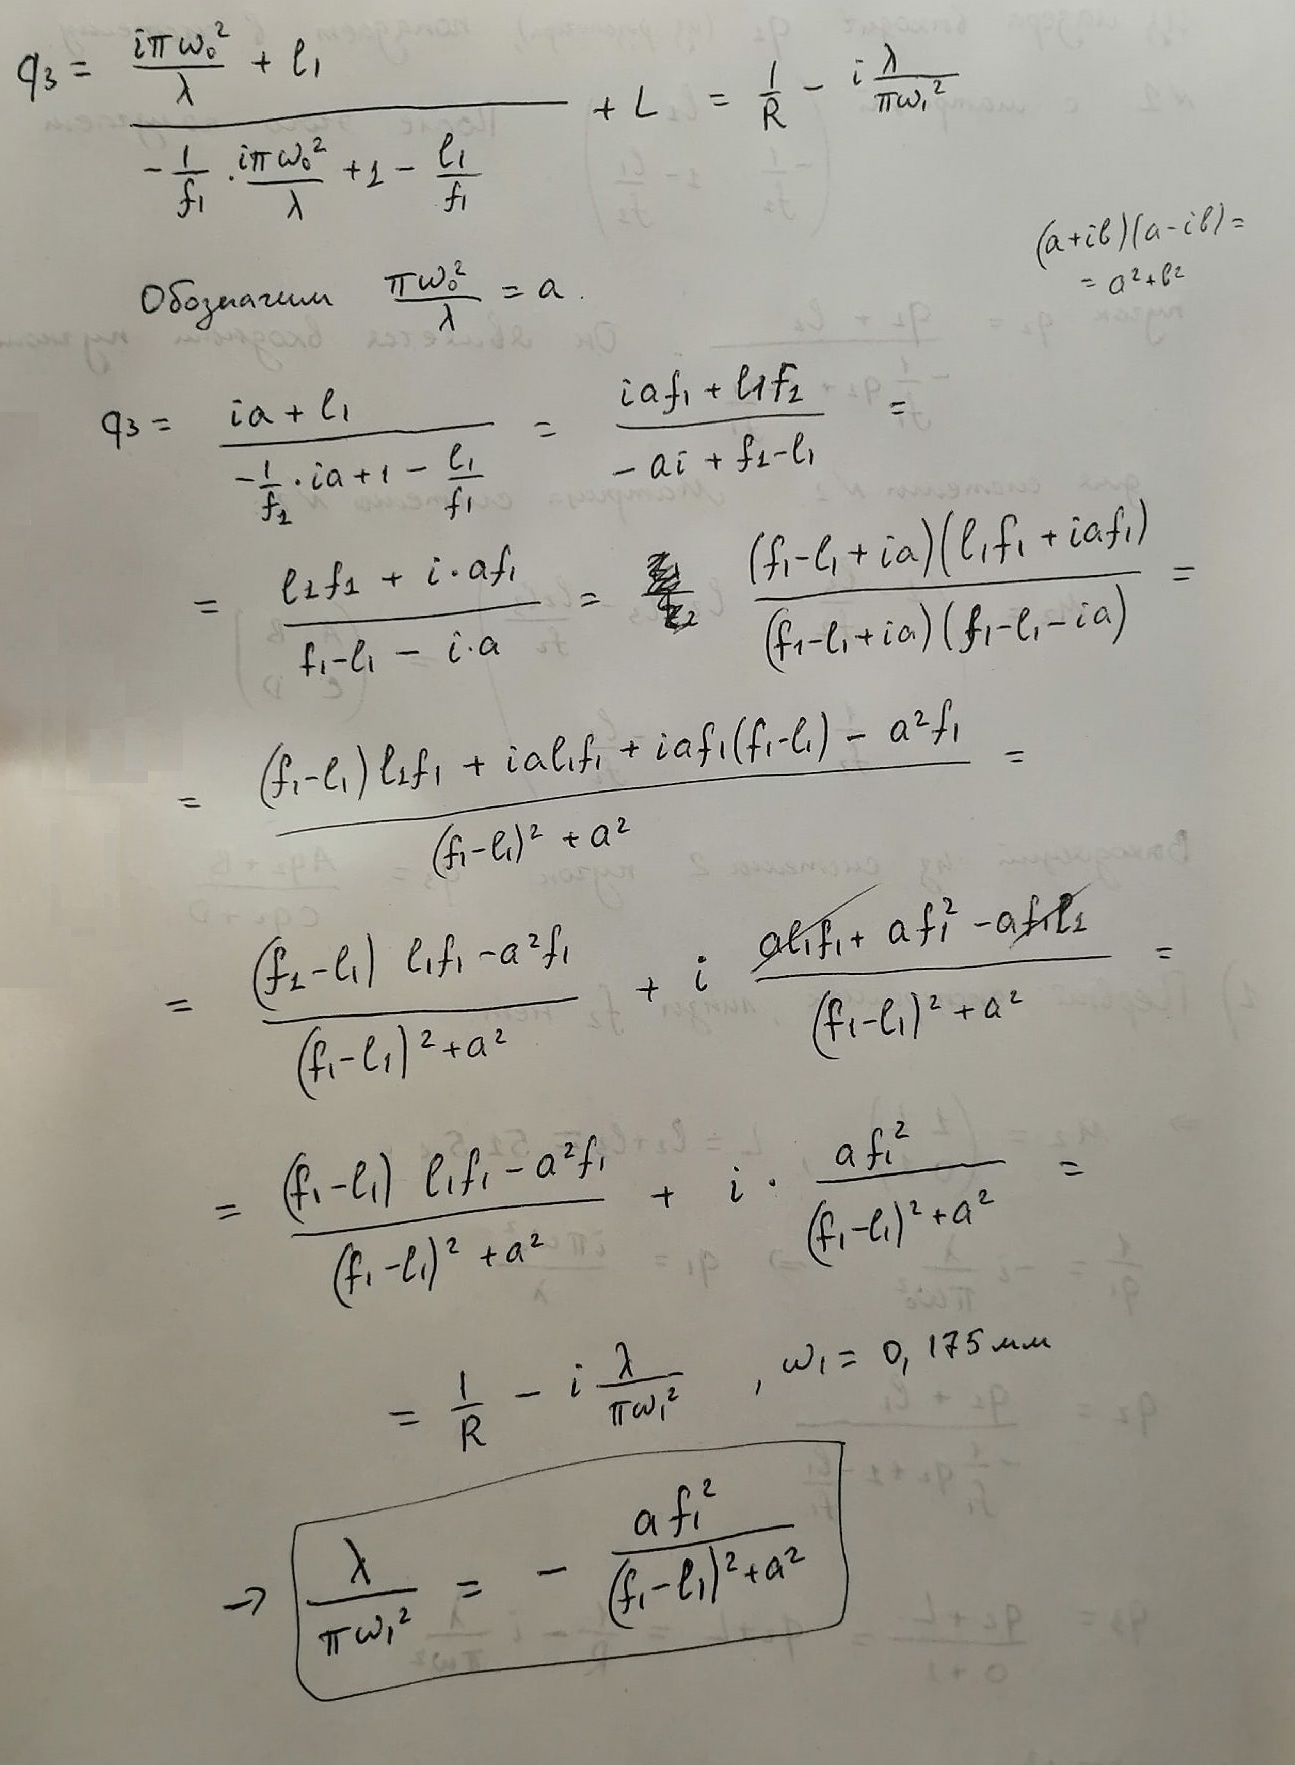 q₃ = (iπω₀²/λ + l₁)/(-1/f₁ · iπω₀²/λ + 1 - l₁/f₁) + L = 1/R - i λ/πω₁²
(a+ib)(a-ib) =
= a²+b²
Обозначим πω₀²/λ = a.
q₃ = (ia + l₁)/(-1/f₁ · ia + 1 - l₁/f₁) = (iaf₁ + l₁f₁)/(-ai + f₁-l₁) =
= (l₁f₁ + i·af₁)/(f₁-l₁ - i·a) = (f₁-l₁+ia)(l₁f₁+iaf₁)/(f₁-l₁+ia)(f₁-l₁-ia) =
= ((f₁-l₁)l₁f₁ + ial₁f₁ + iaf₁(f₁-l₁) - a²f₁)/((f₁-l₁)² + a²) =
= ((f₁-l₁) l₁f₁ - a²f₁)/((f₁-l₁)² + a²) + i (al₁f₁ + af₁² - af₁l₁)/((f₁-l₁)² + a²) =
= ((f₁-l₁) l₁f₁ - a²f₁)/((f₁-l₁)² + a²) + i · af₁²/((f₁-l₁)² + a²) =
= 1/R - i λ/πω₁² , ω₁ = 0,175 мм
→ λ/πω₁² = - af₁²/((f₁-l₁)² + a²)